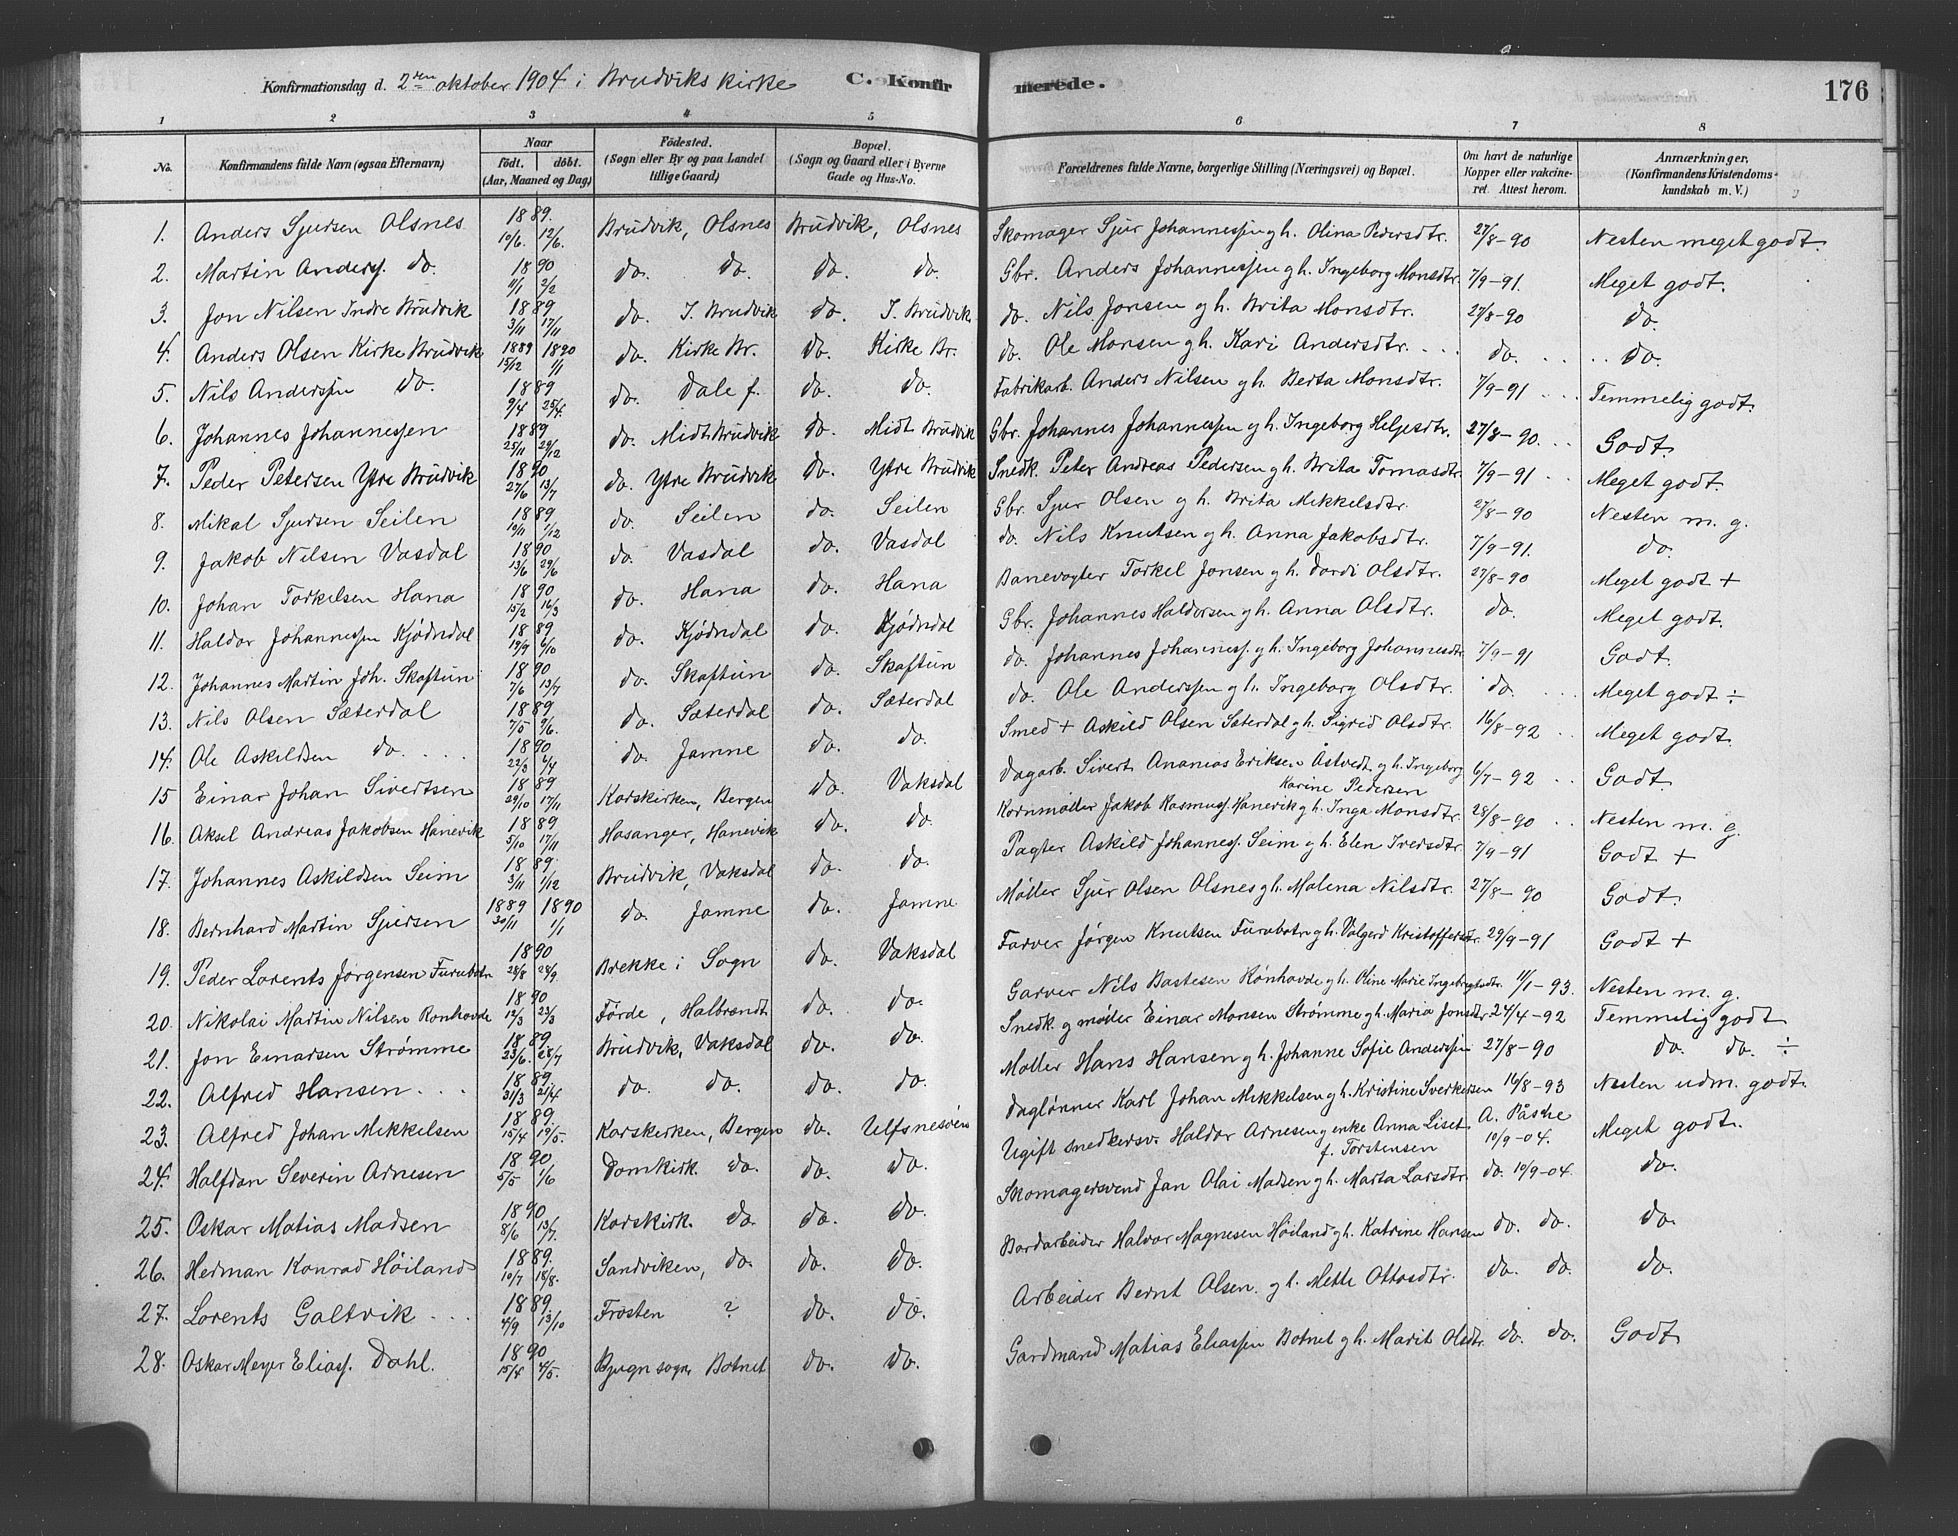 Konfirmationsdag d. 2den oktober 1904 i Brudviks kirke C. Konfirmerede. 176
1 2 3 4 5 6 7 8
No. Konfirmandens fulde Navn (ogsaa Efternavn) Naar født. døbt. (Aar, Maaned og Dag) Fødested. (Sogn eller By og paa Landet tillige Gaard) Bopæl. (Sogn og Gaard eller i Byerne Gade og Hus-No. Forældrenes fulde Navne, borgerlige Stilling (Næringsvei) og Bopæl. Om havt de naturlige Kopper eller vaccineret. Attest herom. Anmærkninger, (Konfirmandens Kristendomskundskab m. V.)
1. Anders Sjursen Olsnes 1889. 10/6. 12/6. Brudvik, Olsnes Brudvik, Olsnes Skomager Sjur Johannessen g h. Olina Pedersdtr. 27/8-90 Nesten meget godt.
2. Martin Anders. do. 1890 11/1 2/2 do. do. do. do. Gbr. Anders Johannessen g h. Ingeborg Monsdtr. 7/9-91. Meget godt.
3. Jon Nilsen Indre Brudvik 1889 3/11 17/11 do. I. Brudvik do. I. Brudvik do. Nils Jonsen g h. Brita Monsdtr. 27/8-90 do.
4. Anders Olsen Kirke Brudvik 1889 1890 15/12 1/1 do. Kirke Br. do. Kirke Br. do. Ole Monsen g h. Kari Andersdtr. do. do.
5. Nils Anderssen do. 1889 9/4 25/4. do. Dale f. do. do. Fabrikarb. Anders Nilsen g h. Berta Monsdtr. 7/9-91 Temmelig godt.
6. Johannes Johannessen 1889 25/11 29/12 do. Midt Brudvik do. Midt Brudvik Gbr. Johannes Johannessen g h. Ingeborg Helgesdtr. 27/8-90. Godt
7. Peder Petersen Ytre Brudvik 1890 27/6 13/7 do. Ytre Brudvik do. Ytre Brudvik Snedk. Peter Andreas Pedersen g h. Brita Tomasdtr. 7/9-91 Meget godt.
8. Mikal Sjursen Seilen 1889 10/11 1/12 do. Seilen do. Seilen Gbr. Sjur Olsen g h. Brita Mikkelsdtr. 27/8-90 Nesten m. g.
9. Jakob Nilsen Vasdal 1890 13/6 29/6 do. Vasdal do. Vasdal do. Nils Knutsen g h. Anna Jakobsdtr. 7/9-91. do.
10. Johan Torkelsen Hana 1890 15/2 16/3 do. Hana do. Hana Banevogter Torkel Jonsen g h. Dordi Olsdtr. 27/8-90 Meget godt +
11. Haldor Johannessen Kjødndal 1889 19/9 6/10 do. Kjødndal do. Kjødndal Gbr. Johannes Haldorsen g h. Anna Olsdtr. do. Meget godt.
12. Johannes Martin Joh. Skaftun 1890 7/6 13/7 do. Skaftun do. Skaftun do. Johannes Johanness. g h. Ingeborg Johannesdtr. 7/9-91 Godt.
13. Nils Olsen Sæterdal 1889 7/5 9/6. do. Sæterdal do. Sæterdal do. Ole Anderssen g h. Ingeborg Olsdtr. do. Meget godt ÷
14. Ole Askildsen do. 1890 22/3 4/4 do. Jamne do. do. Smed + Askild Olsen Sæterdal g h. Sigrid Olsdtr. 16/8-92 Meget godt.
15 Einar Johan Sivertsen 1889 29/10 17/11 Korskirken, Bergen do. Vaksdal Dagarb. Sivert Ananias Eriksen Åstvedt g h. Ingeborg Karine Pedersen 6/7-92 Godt
16. Aksel Andreas Jakobsen Hanevik 1889 5/10 17/11 Hosanger, Hanevik do. do. Kornmøller Jakob Rasmuss. Hanevik g h. Inga Monsdtr. 28/8-90 Nesten m. g.
17. Johannes Askildsen Seim 1889. 3/11 1/12 Brudvik, Vaksdal do. do. Pagter Askild Johanness. Seim g h. Elen Iversdtr. 7/9-91 Godt +
18. Bernhard Martin Sjursen 1889 1890 30/11 1/1 do. Jamne do. Jamne Møller Sjur Olsen Olsnes g h. Malena Nilsdtr. 27/8-90 Godt.
19. Peder Lorents Jørgensen Furubotn 1890 28/8 28/9. Brekke i Sogn do. Vaksdal Farver Jørgen Knutsen Furubotn g h. Valgerd Kristoffersdtr. 29/9-91 Godt +
20. Nikolai Martin Nilsen Ronhovde 1890 12/3 23/3 Førde, Halbrendt do. do. Garver Nils Bastesen Rønhovde g h. Oline Marie Ingebrigtsdtr. 11/1-93. Nesten m. g.
21. Jon Einarsen Strømme 1889 23/6. 28/7 Brudvik, Vaksdal do. do. Snedk g møller Einar Monsen Strømme g h. Maria Jonsdtr 24/4-92 Temmelig godt
22. Alfred Hansen 1889 31/3 21/4 do. do. do. do. Møller Hans Hansen g h. Johanne Sofie Anderssen 27/8-90 do. do. ÷
23. Alfred Johan Mikkelsen 1889. 15/4 19/5. Korskirken, Bergen do. Ulfsnesøen Daglønner Karl Johan Mikkelsen g h. Kristine Sverkersen 16/8-93 Nesten udm. godt.
24. Halfdan Severin Arnesen 1890 5/5 1/6 Domkirk. do. do. do. Ugift snedkersv. Haldor Arnesen g enke Anna Liset f. Torstensen A. Påske 10/9-04. Meget godt.
25. Oskar Matias Madsen 1890 8/6 13/7. Korskirk. do. do. do. Skomagersvend Jan Olai Madsen g h. Marta Larsdtr. do. 10/9-04. do.
26. Herman Konrad Høiland 1889. 10/7 18/8. Sandviken, do. do. do. Bordarbeider Halvor Magnesen Høiland g h. Katrine Hansen do. do. do.
27. Lorents Galtvik 1889. 4/9 13/10 Frosten ? do. do. Arbeider Bernt Olsen. g h. Mette Ottosdtr. do. do. do.
28. Oskar Meyer Eliass. Dahl. 1890 15/4 4/5. Bjugn sogn, Botnet do. do. Gardmand Matias Eliassen Botnet g h. Marit Olsdtr. do. do. Godt